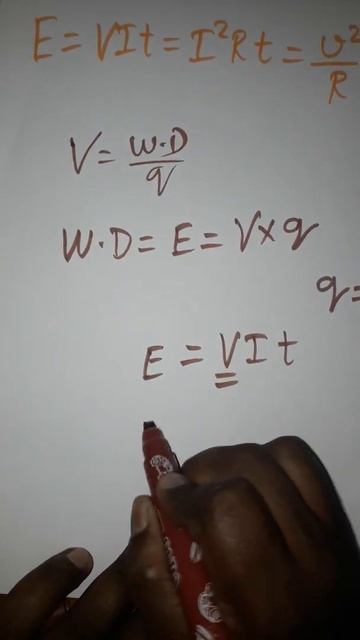 E = VIt = I²Rt = v²/R
V = W.D/q
W.D = E = V×q
q =
E = VIt